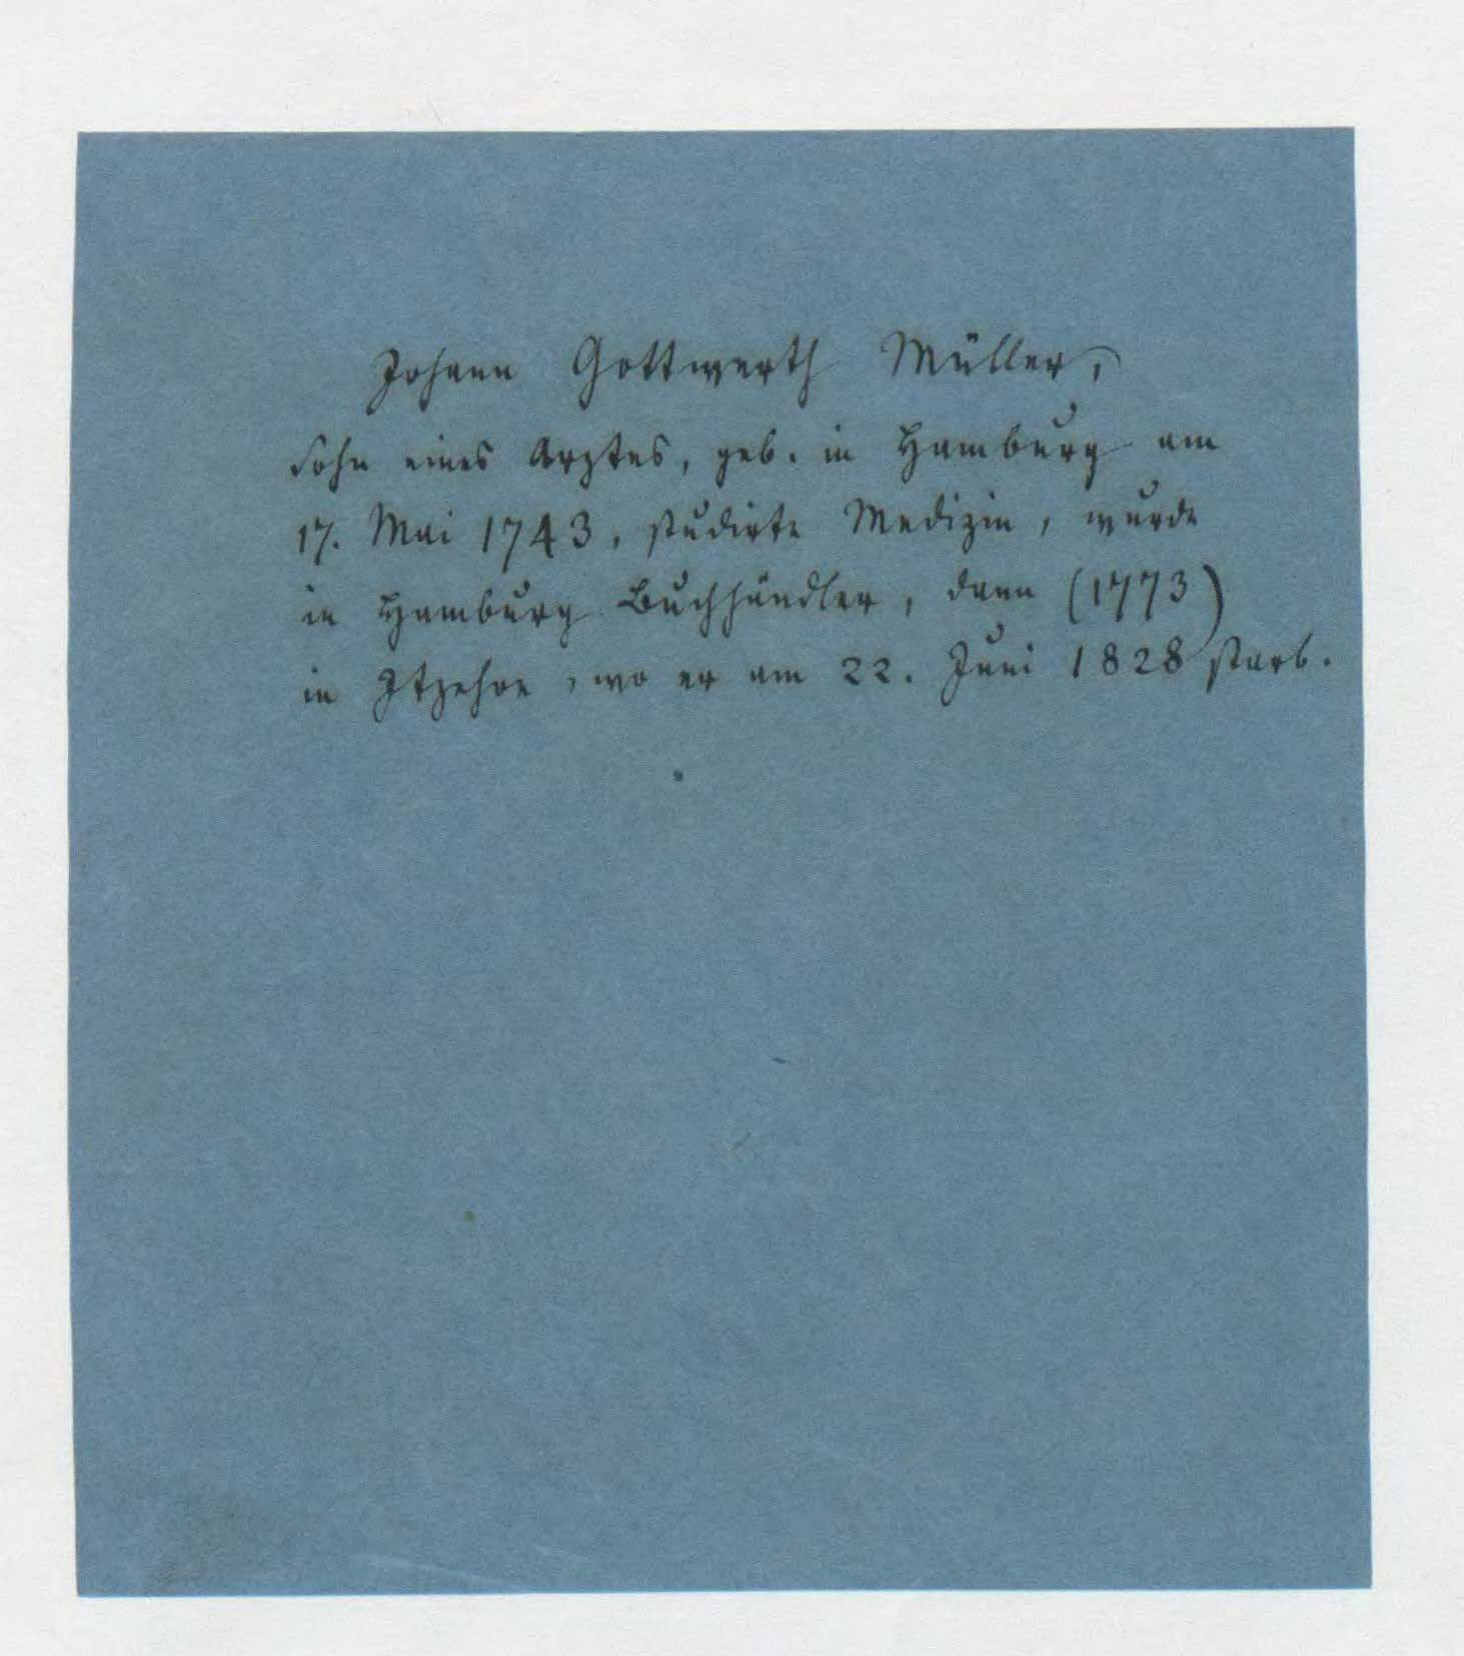 Johann Gottwerth Müller,
Sohn eines Arztes, geb. in Hamburg am
17. Mai 1743, studirte Medizin, wurde
in Hamburg Buchhändler, dann (1773)
in Itzehoe, wo er am 22. Juni 1828 starb.